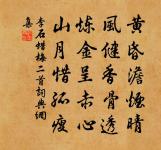 黄昏澹煙晴
風健香骨透
煉金呈赤心
山月惜孤瘦
李石蜡梅二首詞典網
集